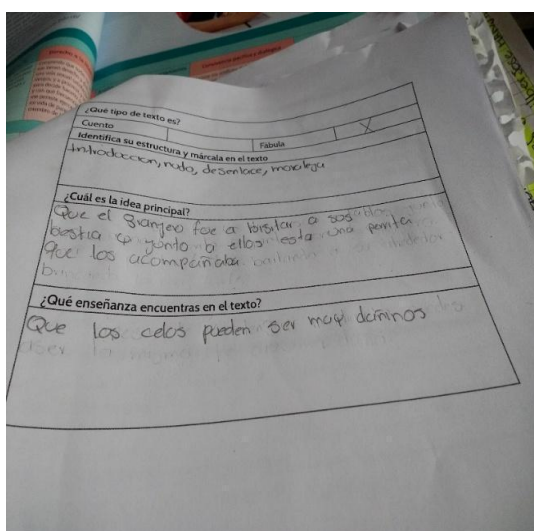 ¿Qué tipo de texto es?
Cuento Fábula X
Identifica su estructura y márcala en el texto
Introduccion, nudo, desenlace, moraleja
¿Cuál es la idea principal?
Que el granjeo fue a bisitar a sus
bestia y junto a ellos esta una perita
que los acompañaba
¿Qué enseñanza encuentras en el texto?
Que los celos pueden ser muy daminos